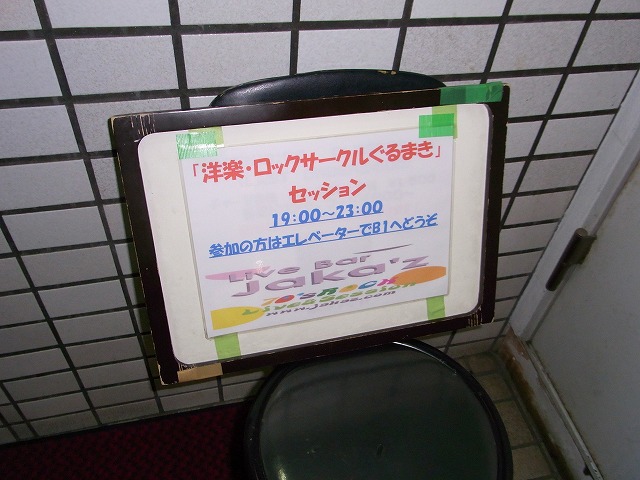 「洋楽・ロックサークルぐるまき」
セッション
19:00～23:00
参加の方はエレベーターでB1へどうぞ
Live Bar
Jaka'z
70'S ROCK
Live & Session
www.jakaz.com